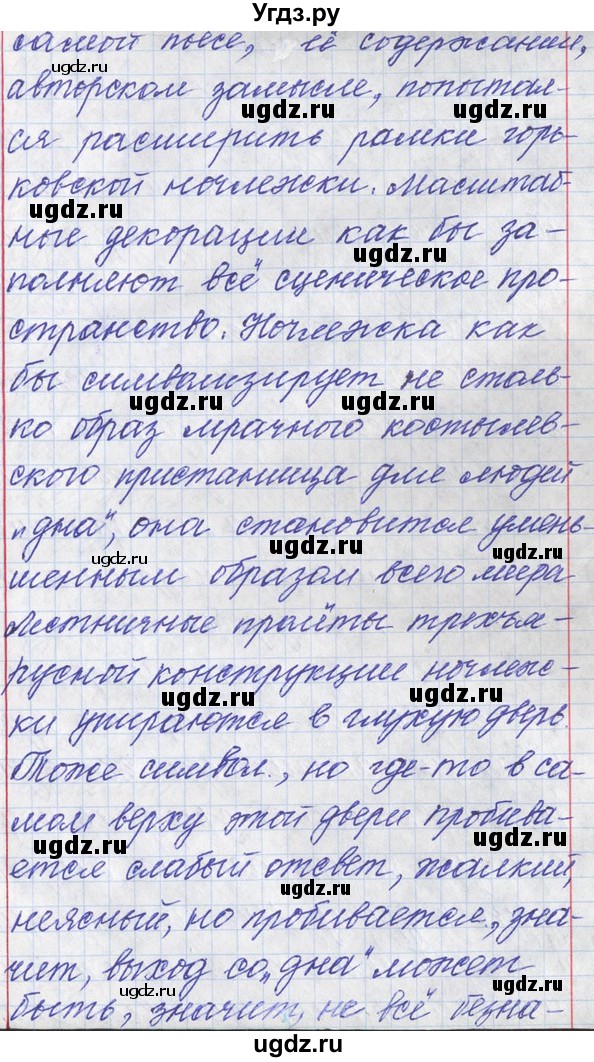 Угдз.ру
самой пьесе, её содержании,
авторском замысле, попытал-
ся расширить рамки горь-
ковской ночлежки. Масштаб-
ные декорации как бы за-
полняют всё сценическое про-
странство. Ночлежка как
бы символизирует не столь-
ко образ мрачного костылев-
ского пристанища для людей
„дна“, она становится умень-
шенным образом всего мира
Лестничные пролёты трехъя-
русной конструкции ночлеж-
ки упираются в глухую дверь.
Тоже символ., но где-то в са-
мом верху этой двери пробива-
ется слабый отсвет, жалкий,
неясный, но пробивается., зна-
чит, выход со „дна“ может
быть, значит, не всё безна-
ugdz.ru